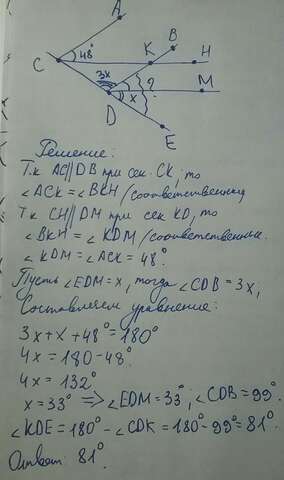 A
B
48°
K
H
C
3x
?
M
x
D
E
Решение:
Т.к AC∥DB при сек. CK, то
∠ACK = ∠BKH /соответственных
Т.к CH∥DM при сек KD, то
∠BKH = ∠KDM /соответственные.
∠KDM = ∠ACK = 48°.
Пусть ∠EDM = x, тогда ∠CDB = 3x,
Составляем уравнение:
3x + x + 48° = 180°
4x = 180 - 48°.
4x = 132°.
x = 33° => ∠EDM = 33°; ∠CDB = 99°.
∠KDE = 180° - ∠CDK = 180° - 99° = 81°.
Ответ: 81°.